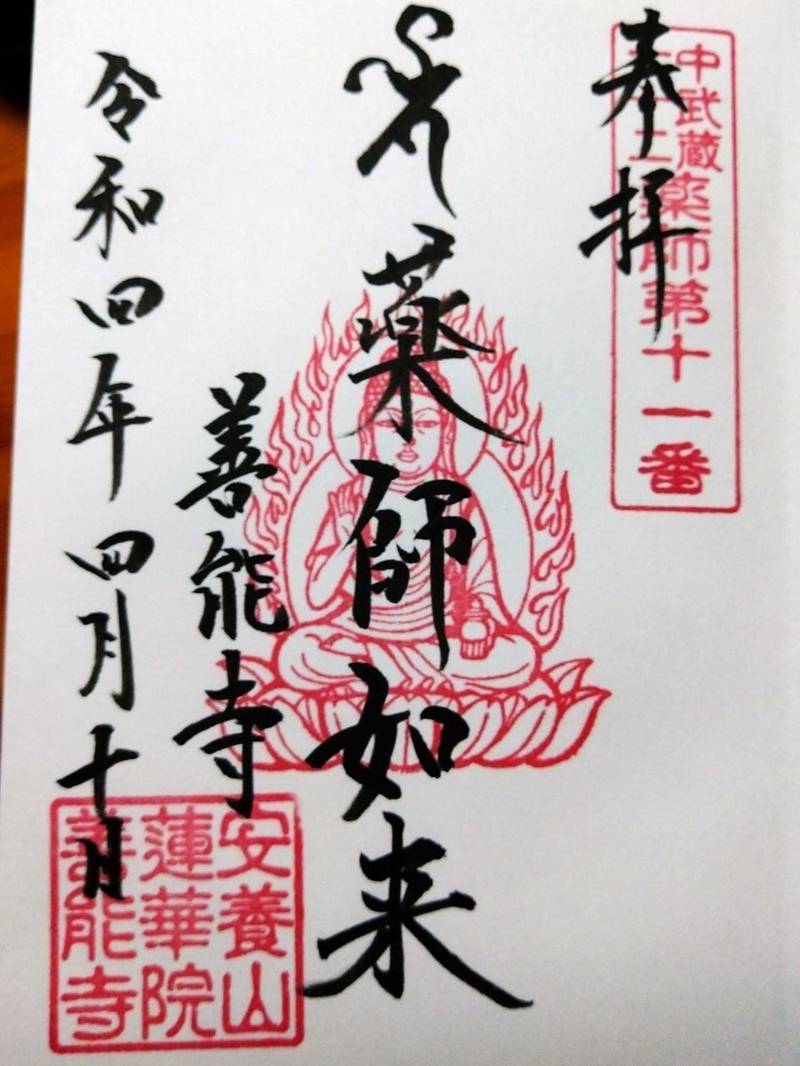 奉拝
中武蔵
七十二薬師第十一番
薬師如来
善能寺
令和四年四月十日
安養山
蓮華院
善能寺